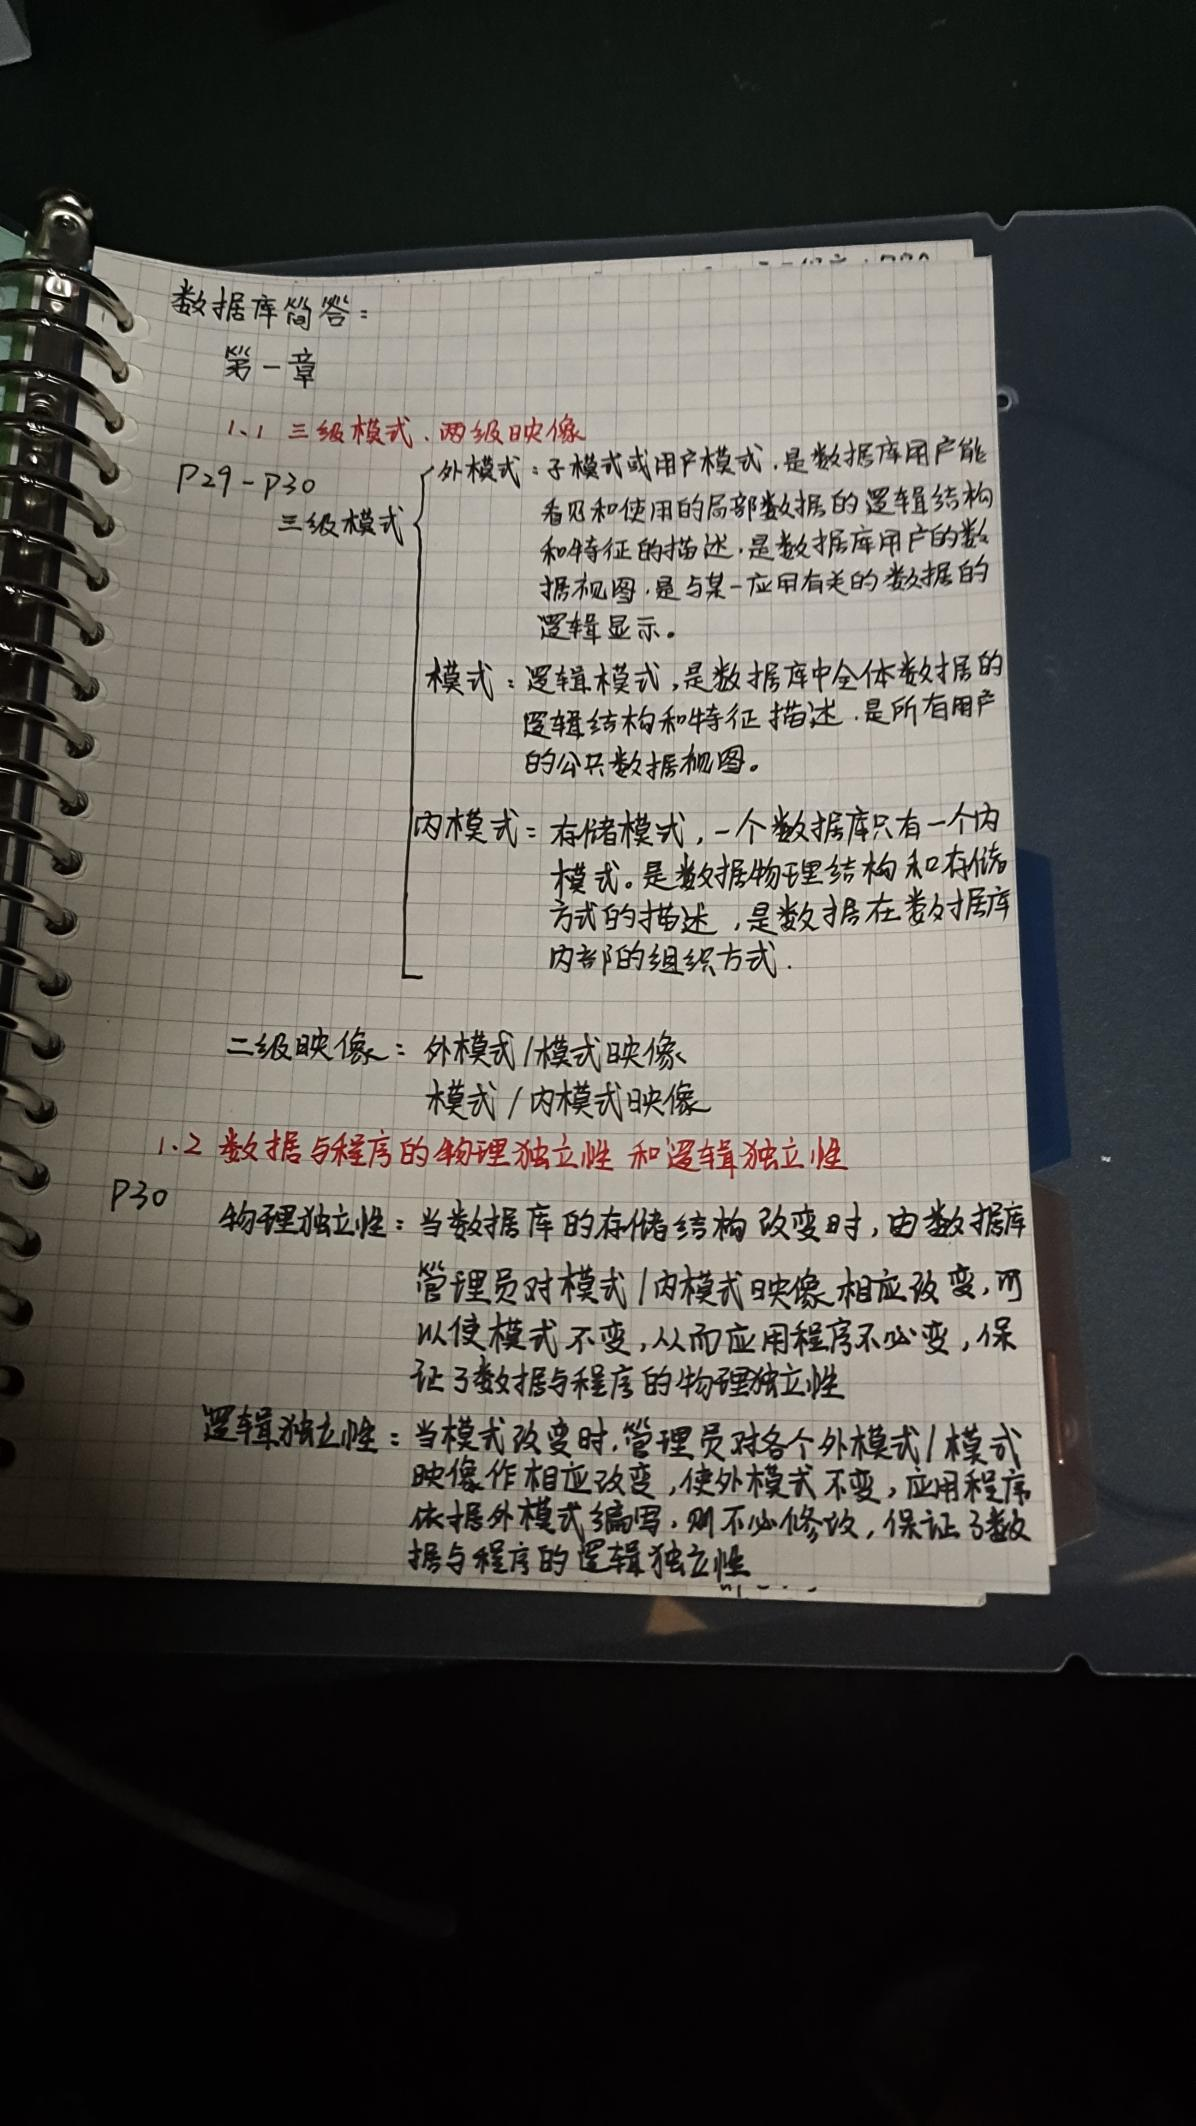 数据库简答：
第一章
1.1 三级模式、两级映像
P29-P30
三级模式
外模式：子模式或用户模式，是数据库用户能
看见和使用的局部数据的逻辑结构
和特征的描述，是数据库用户的数
据视图，是与某一应用有关的数据的
逻辑显示。
模式：逻辑模式，是数据库中全体数据的
逻辑结构和特征描述，是所有用户
的公共数据视图。
内模式：存储模式，一个数据库只有一个内
模式。是数据物理结构和存储
方式的描述，是数据在数据库
内部的组织方式．
二级映像：外模式/模式映像、
模式/内模式映像
1.2 数据与程序的物理独立性和逻辑独立性
P30
物理独立性：当数据库的存储结构改变时，由数据库
管理员对模式/内模式映像相应改变，可
以使模式不变，从而应用程序不必变，保
证了数据与程序的物理独立性
逻辑独立性：当模式改变时，管理员对各个外模式/模式
映像作相应改变，使外模式不变，应用程序
依据外模式编写，则不必修改，保证了数
据与程序的逻辑独立性